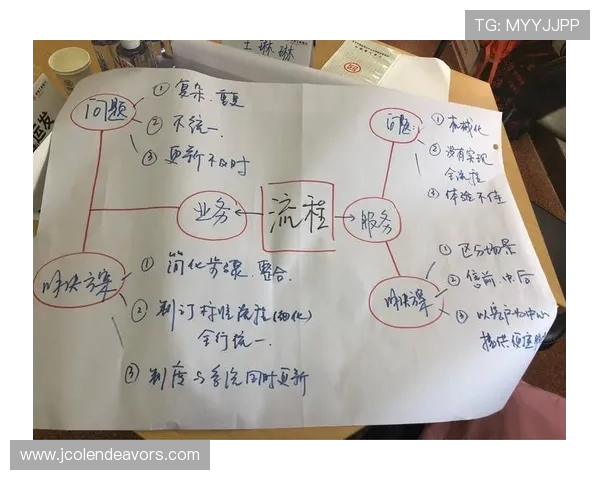 TG: MYYJJPP
王琳琳
问题
① 复杂、重复
② 不统一
③ 更新不及时
问题:
① 机械化
② 没有实现
全流程
③ 体验不佳
业务
流程
服务
解决方案
① 简化步骤、整合
② 制订标准流程(细化)
全行统一
③ 制度与系统同时更新
解决方案
① 区分场景
② 售前、中、后
③ 以客户为中心
提供便捷服
www.jcolendeavors.com